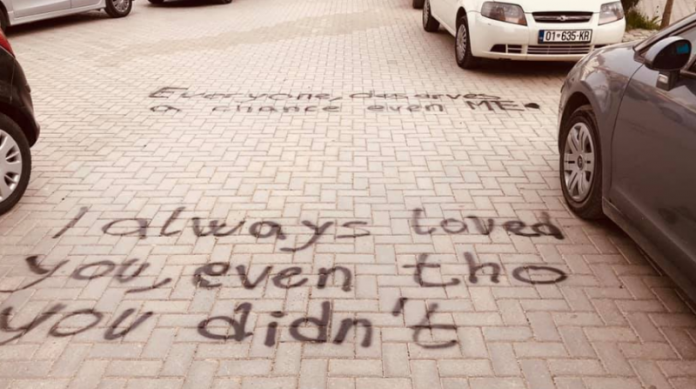 01·635·KR
Everyone, deserves
a chance even ME.
I always loved
you, even tho
you didn't